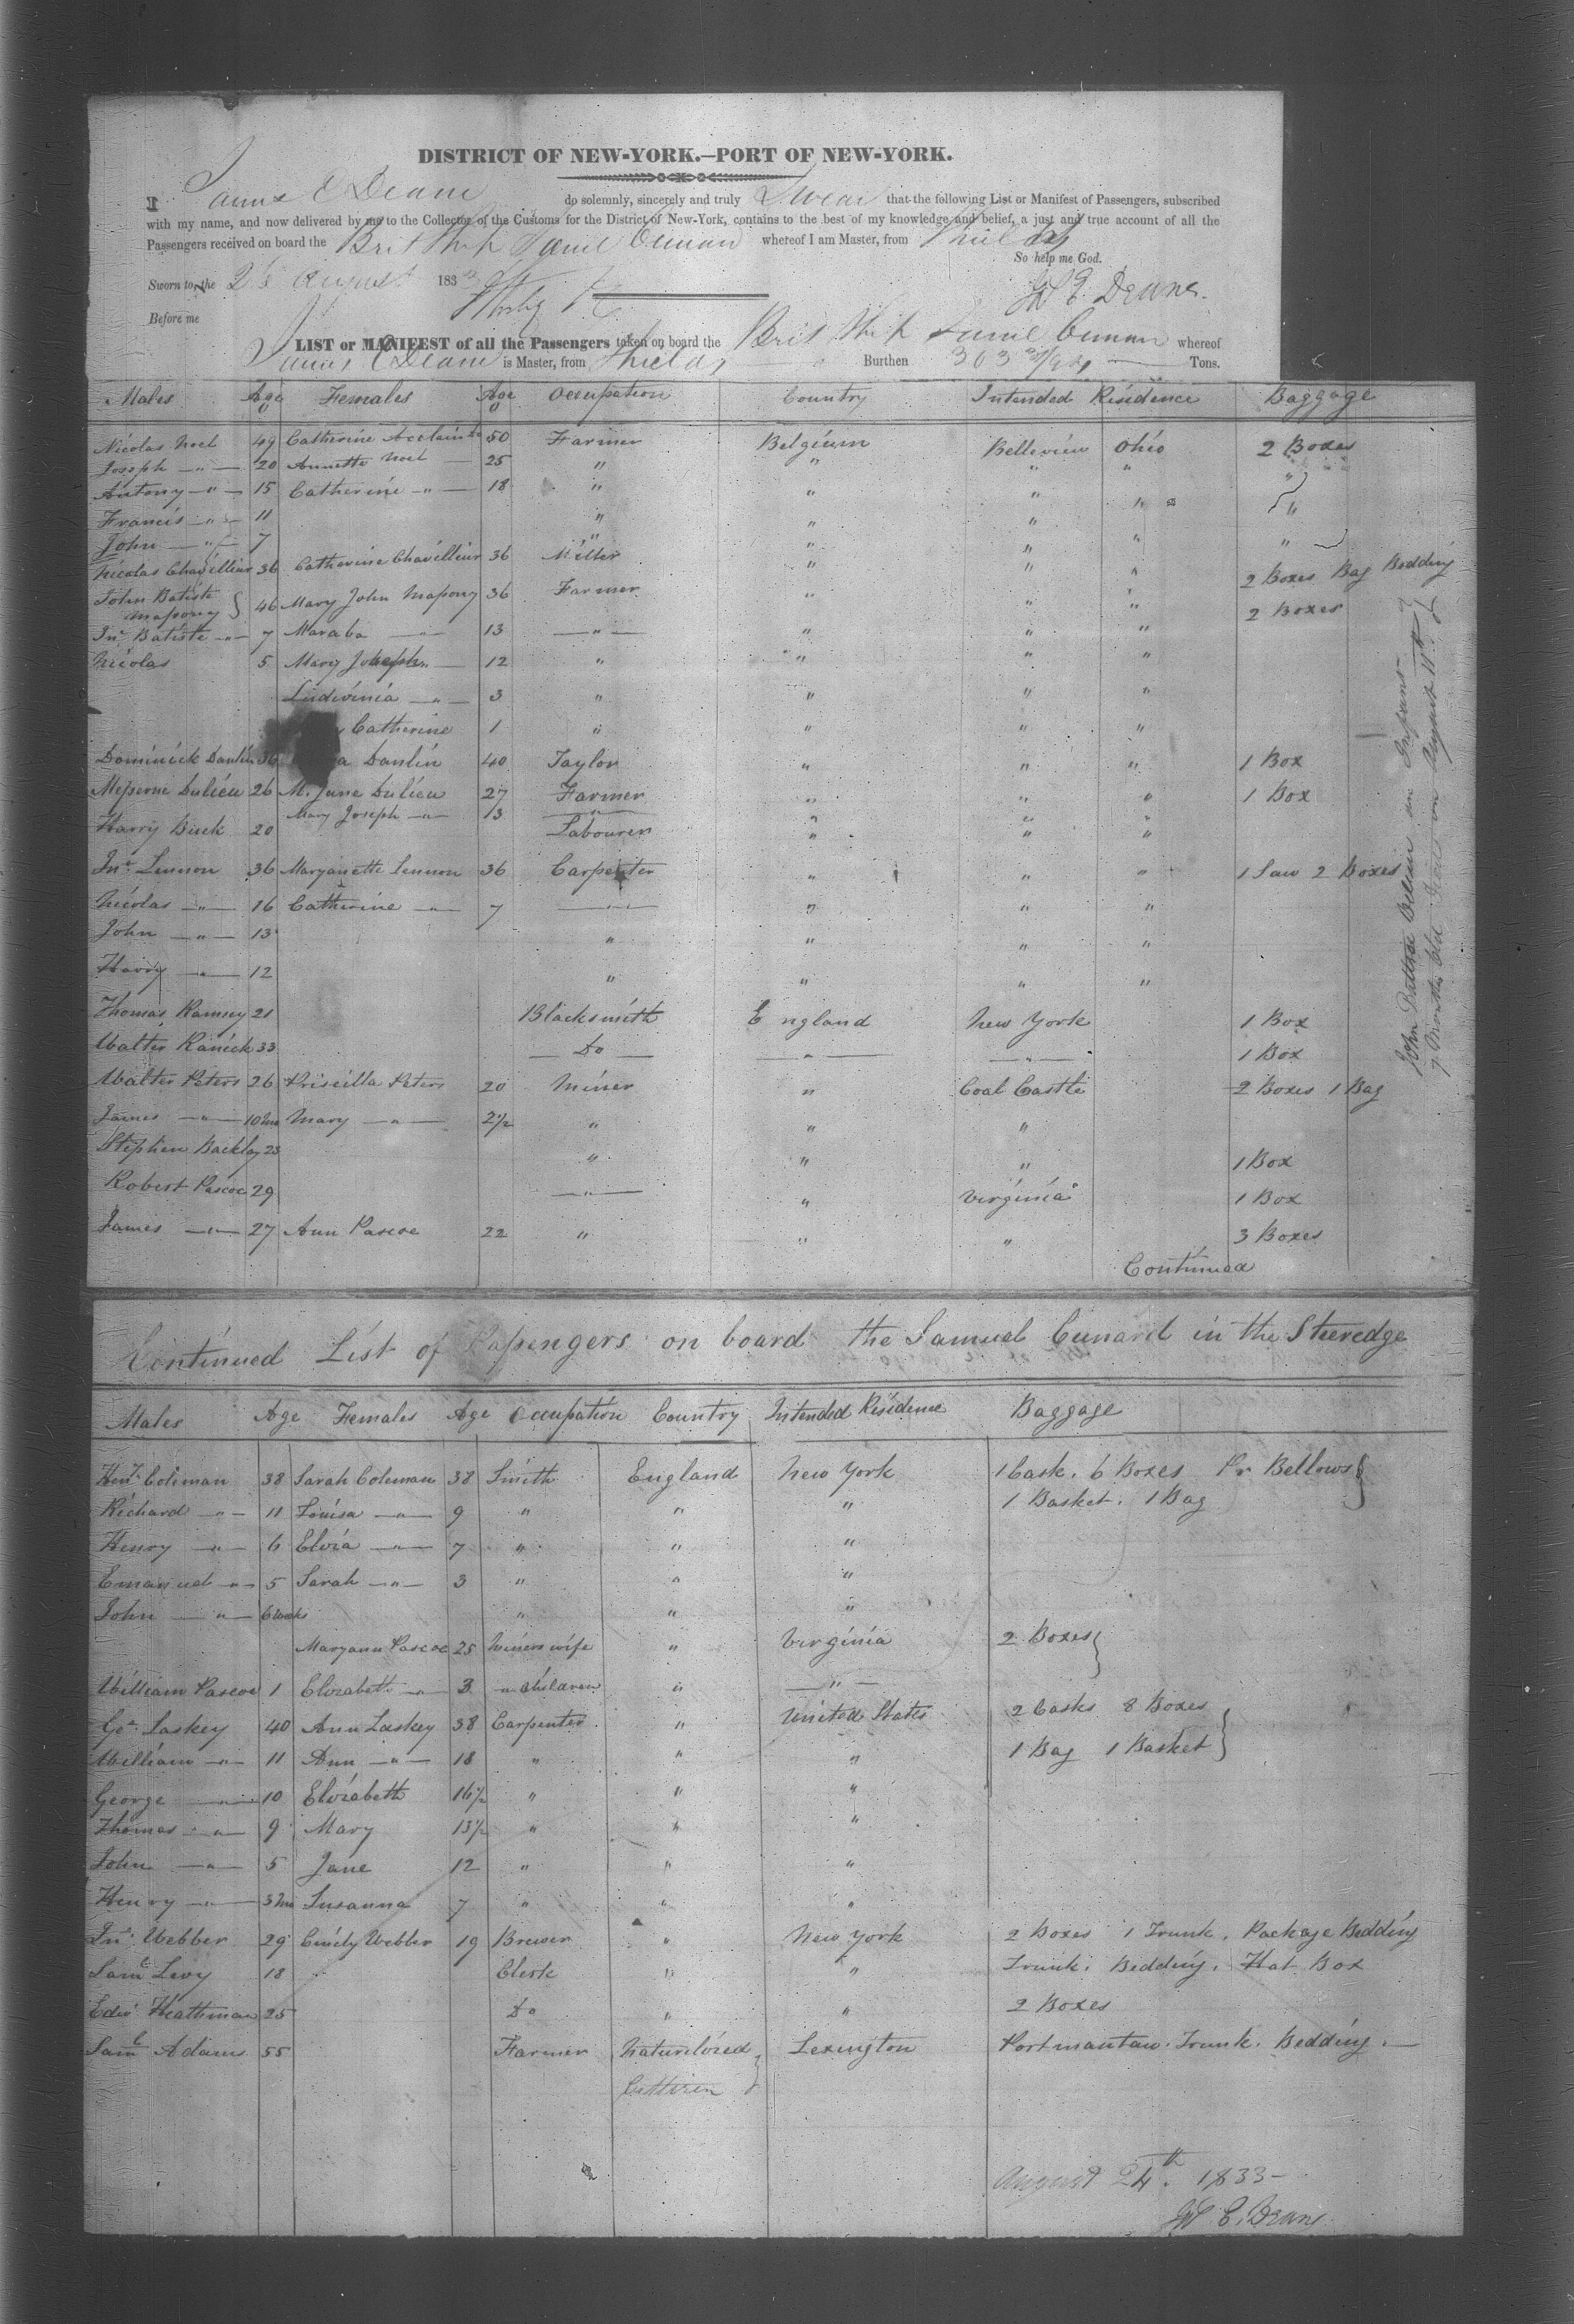 DISTRICT OF NEW-YORK.—PORT OF NEW-YORK.
I James E Deane do solemnly, sincerely and truly Swear that the following List or Manifest of Passengers, subscribed
with my name, and now delivered by me to the Collector of the Customs for the District of New-York, contains to the best of my knowledge and belief, a just and true account of all the
Passengers received on board the Brit Ship Saml Cunard whereof I am Master, from Shields
So help me God.
Sworn to, the 26 August 1833
Before me
LIST or MANIFEST of all the Passengers taken on board the Brit Ship Saml Cunard whereof
James E Deane is Master, from Shields Burthen 303 Tons.
Males Age Females Age Occupation Country Intended Residence Baggage
Nicolas Noel 49 Catherine 50 Farmer Belgium Belleview Ohio 2 Boxes
Joseph —"— 20 Annette Noel 25 " " " " "
Antony —"— 15 Catherine —"— 18 " " "
Francis —"— 11 " " " " "
John —"— 7 " " " " "
Nicolas Chavillier 36 Catherine Chavillier 36 Miller " " " 2 Boxes Bag Bedding
John Batiste
Mapony } 46 Mary John Mapony 36 Farmer " " " 2 Boxes
Jno Batiste —"— 7 Maraba —"— 13 —"— " " "
Nicolas 5 Mary Joheph —"— 12 " " " "
Ludivinia —"— 3 " " " "
Catherine 1 " " " "
Dominick Danlin 36 Danlin 40 Taylor " " " 1 Box
Dulieu 26 M. Jane Dulieu 27 Farmer " " " 1 Box
Mary Joseph —"— 13 —"— " " "
Harry Buck 20 Labourer " " "
Jno Lennon 36 Maryanette Lennon 36 Carpenter " " " 1 Saw 2 Boxes
Nicolas —"— 16 Catherine —"— 7 —"— " " "
John —"— 13 " " " "
Harry —"— 12 " " " "
Thomas Ramsey 21 Blacksmith England New York 1 Box
Walter 33 — Do — —"— —"— 1 Box
Walter Peters 26 Priscilla Peters 20 Miner " Coal Castle 2 Boxes 1 Bag
James —"— 10 Mo Mary —"— 2½ " " "
Stephen 23 " " " 1 Box
Robert Pascoe 29 —"— " Virginia 1 Box
James —"— 27 Ann Pascoe 22 " " " 3 Boxes
Continued
John Batiste an Infant
7 Months Old Died on August 11th
Continued List of Passengers on board the Samual Cunard in the Steredge
Males Age Females Age Occupation Country Intended Residence Baggage
Heny Coleman 38 Sarah Coleman 38 Smith England New York 1 Cask. 6 Boxes Pr Bellows }
Richard —"— 11 Louisa —"— 9 " " " 1 Basket. 1 Bag
Henry —"— 6 Elvia —"— 7 " " "
Emanuel —"— 5 Sarah —"— 3 " " "
John —"— 6 Weeks " " "
Maryann Pascoe 25 Miners wife " Virginia 2 Boxes }
William Pascoe 1 Elizabeth —"— 3 —"— children " —"—
Geo. Laskey 40 Ann Laskey 38 Carpenter " United States 2 Casks 8 Boxes }
William —"— 11 Ann —"— 18 " " " 1 Bag 1 Basket
George —"— 10 Elizabeth 16½ " " "
Thomas —"— 9 Mary 13½ " " "
John —"— 5 Jane 12 " " "
Henry —"— 3 Mo Susanna 7 " " "
Jno Webber 29 Emily Webber 19 Brewer " New York 2 Boxes 1 Trunk. Package Bedding
Saml Levy 18 Clerk " " Trunk. Bedding. Hat Box
Edwd Heathman 25 Do " " 2 Boxes
Saml Adams 55 Farmer Naturelized } Lexington Portmantau. Trunk. Bedding. —
Cittizen
August 24th. 1833 —
E. Deane